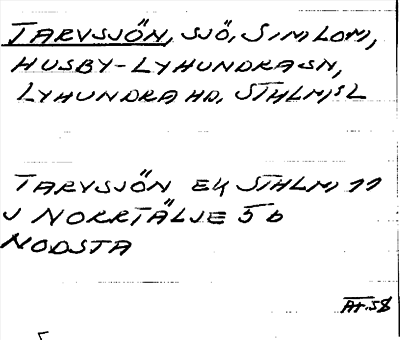 TARVSJÖN, SJÖ, SIMLOM,
HUSBY-LYHUNDRA SN,
LYHUNDRA HD, STHLMS L
TARVSJÖN EK STHLM 11
J NORRTÄLJE 5 b
NODSTA
AT.58